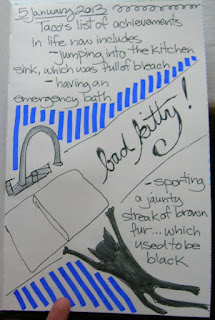 5 January 2013
Taco's list of achievements
in life now includes
-jumping into the kitchen
sink, which was full of bleach
-having an
emergency bath
bad kitty!
-sporting
a jaunty
streak of brown
fur... which
used to be
black